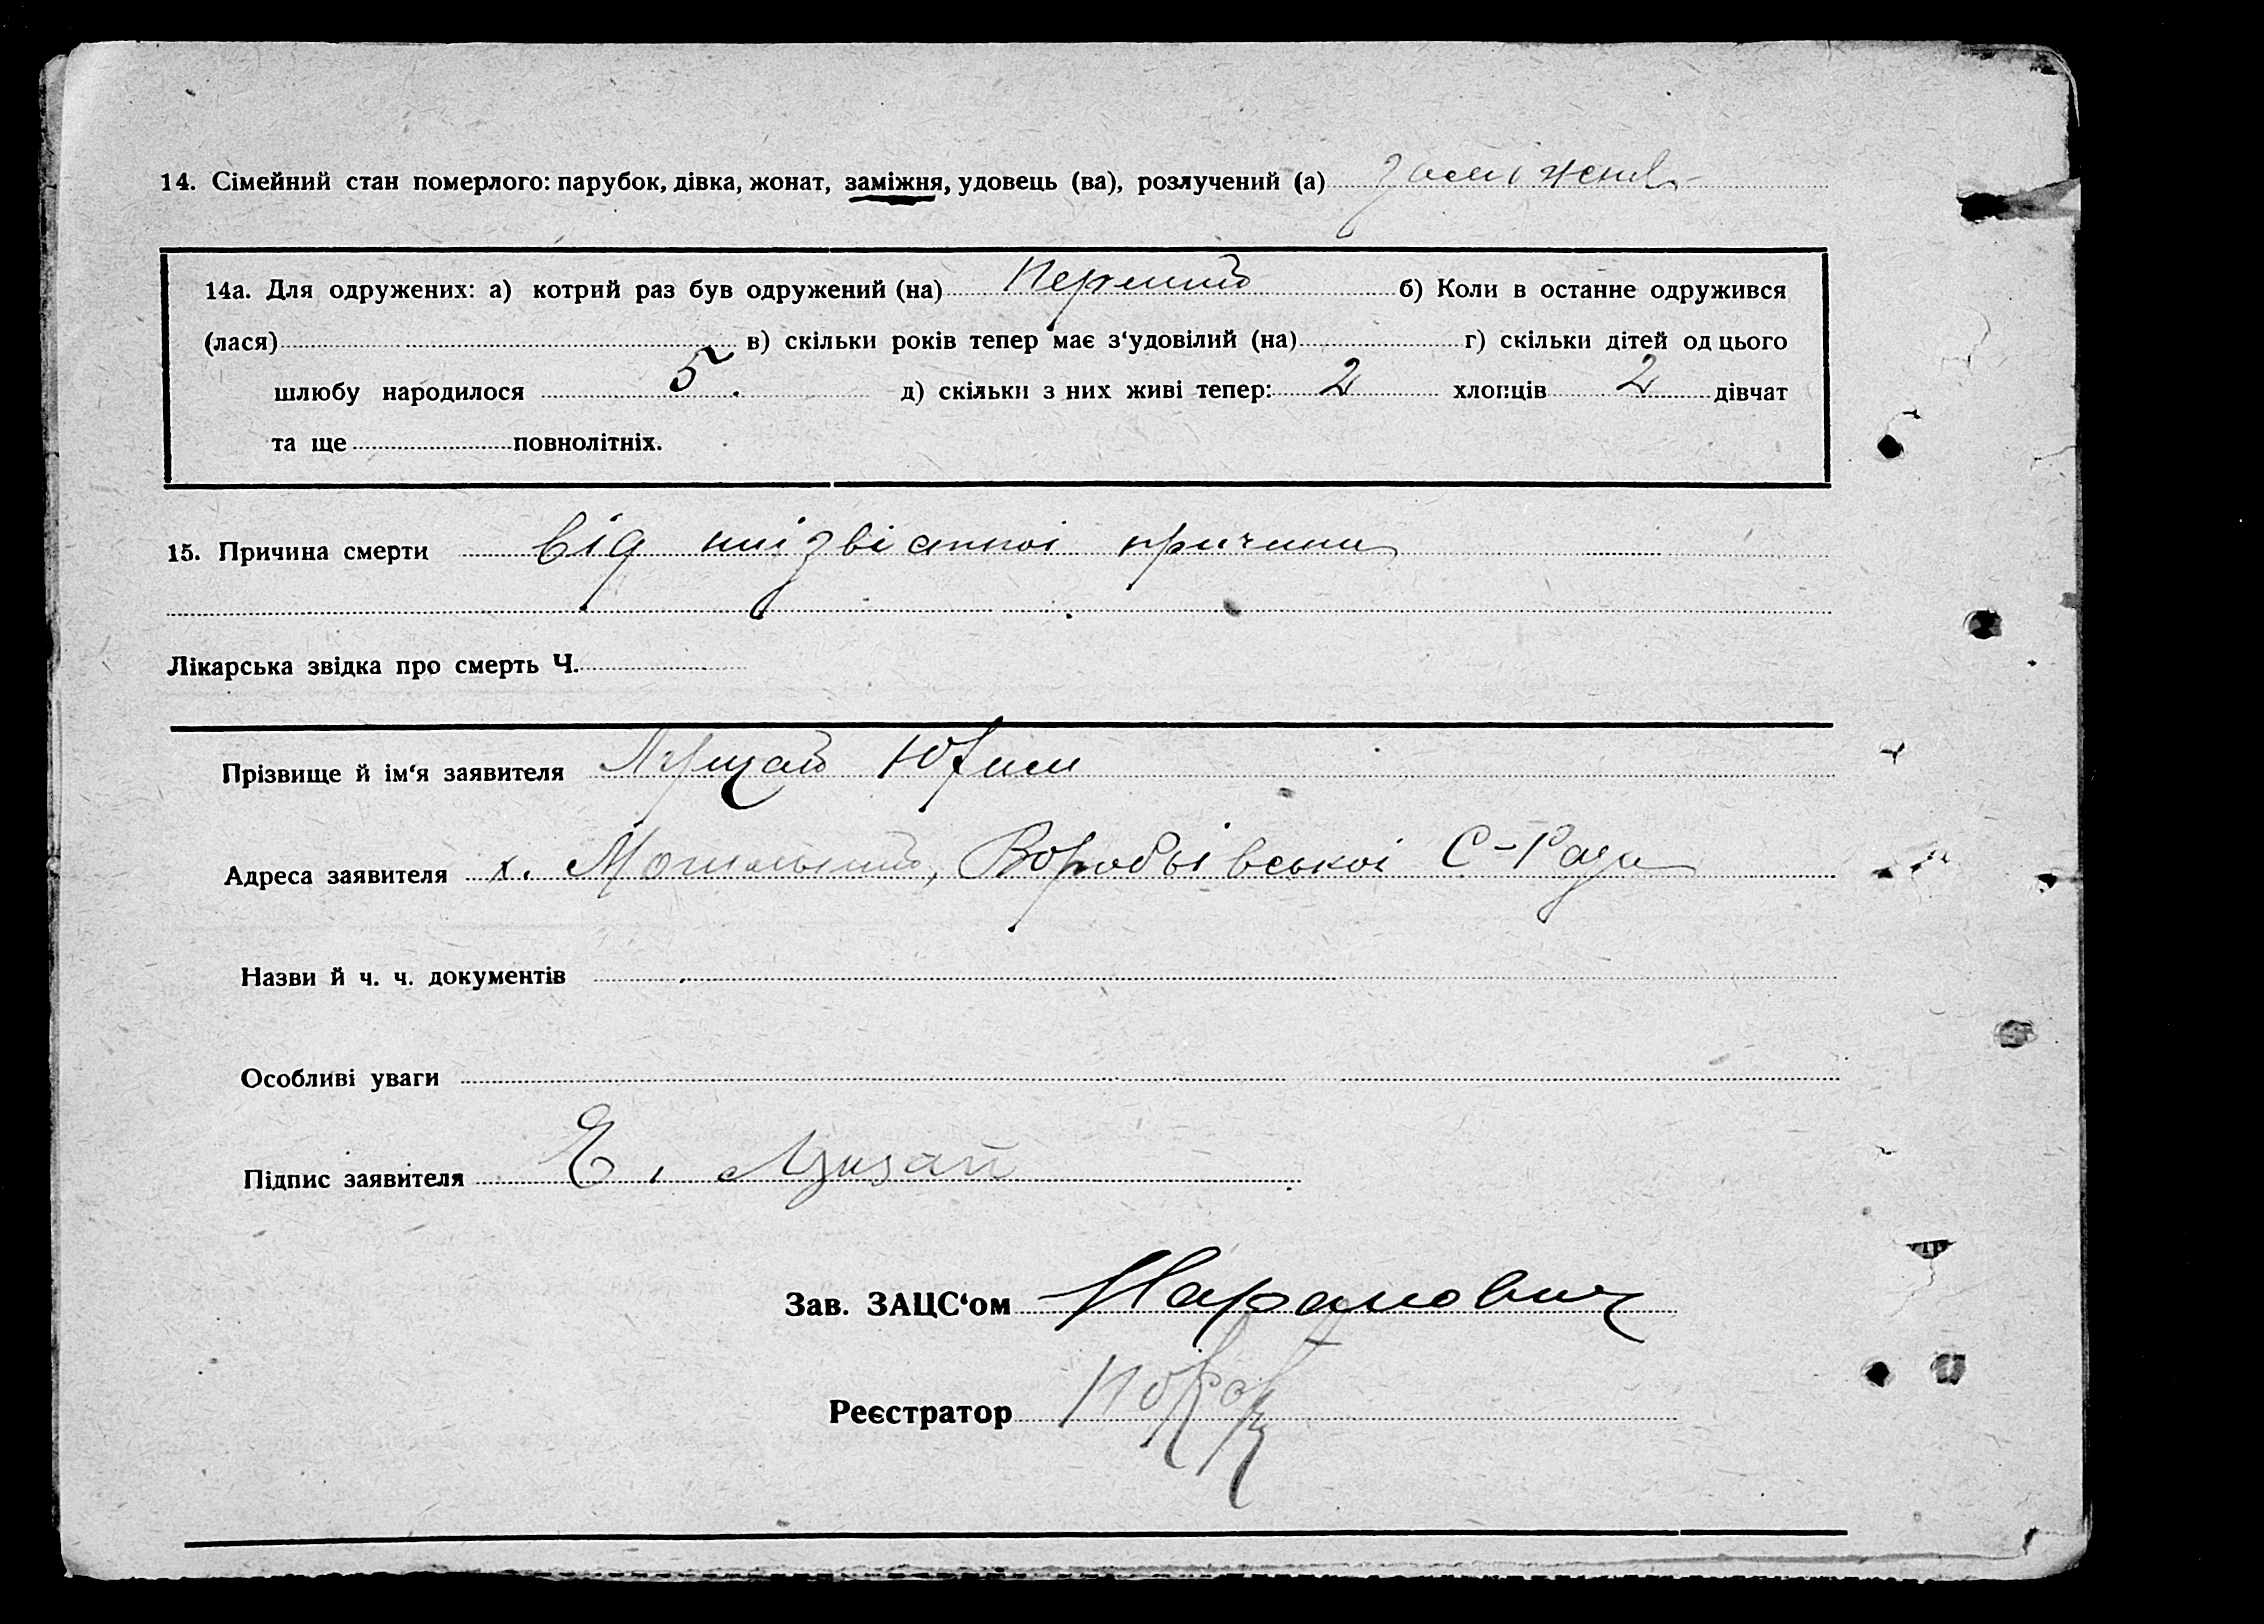 14. Сімейний стан померлого: парубок, дівка, жонат, заміжня, удовець (ва), розлучений (а)
14а. Для одружених: а) котрий раз був одружений (на) Перший б) Коли в останне одружився
(лася) в) скільки років тепер має з‘удовілий (на) г) скільки дітей од цього
шлюбу народилося 5. д) скільки з них живі тепер: 2 хлопців 2 дівчат
та ще повнолітніх.
15. Причина смерти від
Лікарська звідка про смерть Ч.
Прізвище й ім‘я заявителя Юхим
Адреса заявителя х. Воробьівської С-Рада
Назви й ч. ч. документів
Особливі уваги
Підпис заявителя
Зав. ЗАЦС‘ом
Реєстратор